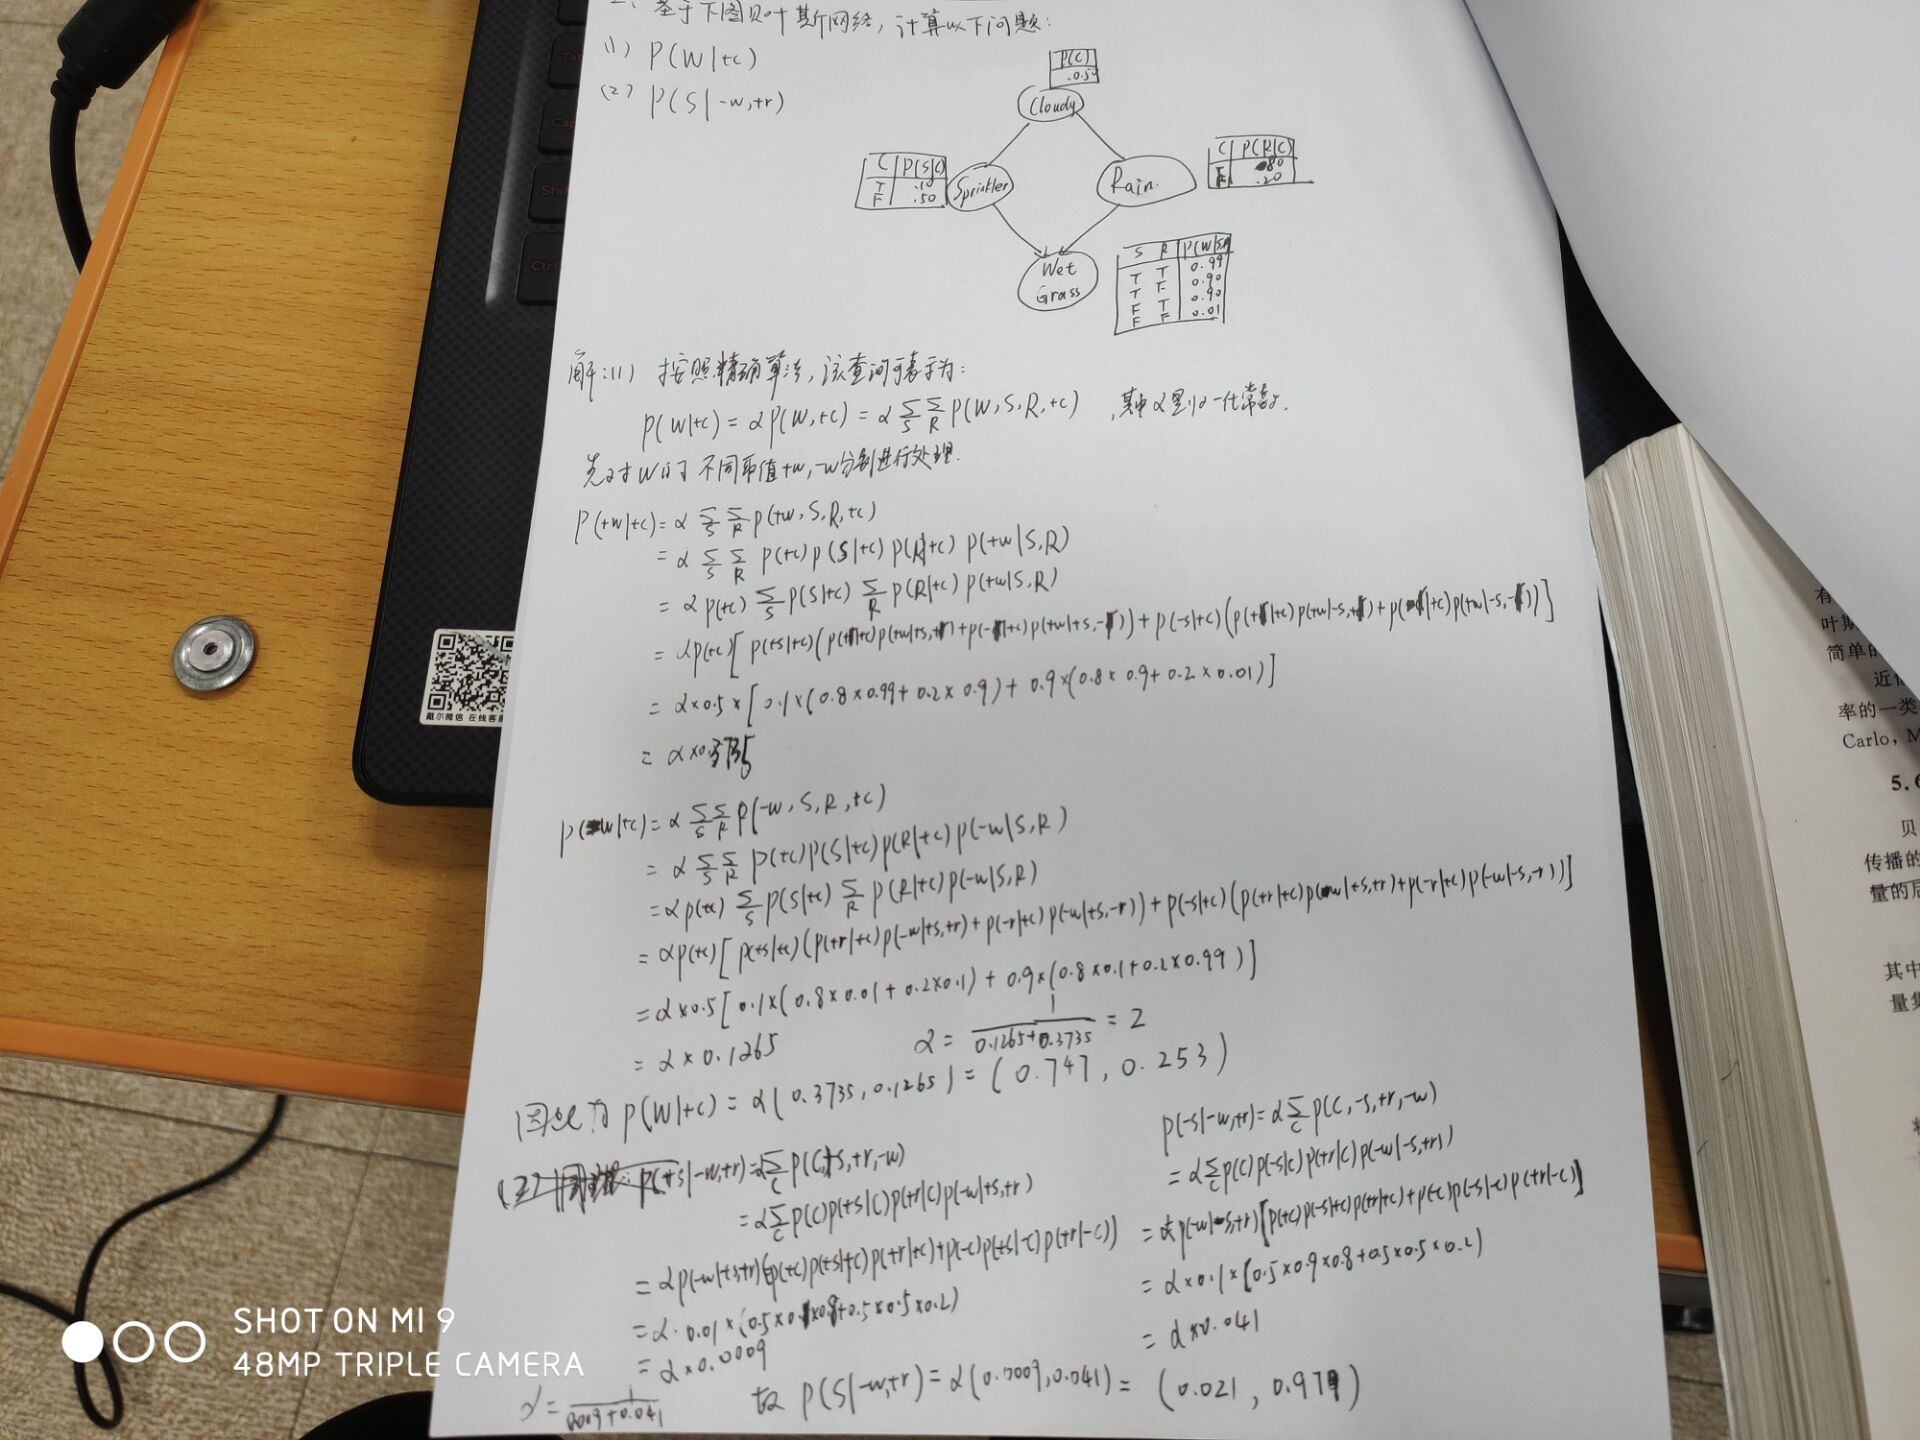 二、基于下图贝叶斯网络，计算以下问题：
(1) P(W|+c)
(2) P(S|-w,+r)
P(C)
.05
Cloudy
C P(S|C)
T .10
F .50
Sprinkler
Rain.
C P(R|C)
T .80
F .20
Wet
Grass
S R P(W|S,R)
T T 0.99
T F 0.90
F T 0.90
F F 0.01
解:(1) 按照精确算法，该查询可表示为：
P(W|+c) = αP(W,+c) = α Σ_S Σ_R P(W,S,R,+c) ，其中α是归一化常数.
先对W的不同取值+w,-w分别进行处理.
P(+w|+c) = α Σ_S Σ_R P(+w,S,R,+c)
= α Σ_S Σ_R P(+c)P(S|+c)P(R|+c)P(+w|S,R)
= αP(+c) Σ_S P(S|+c) Σ_R P(R|+c)P(+w|S,R)
= αP(+c)[P(+s|+c)(P(+r|+c)P(+w|+s,+r)+P(-r|+c)P(+w|+s,-r))+P(-s|+c)(P(+r|+c)P(+w|-s,+r)+P(-r|+c)P(+w|-s,-r))]
= α×0.5×[0.1×(0.8×0.99+0.2×0.9)+0.9×(0.8×0.9+0.2×0.01)]
= α×0.3735
P(-w|+c) = α Σ_S Σ_R P(-w,S,R,+c)
= α Σ_S Σ_R P(+c)P(S|+c)P(R|+c)P(-w|S,R)
= αP(+c) Σ_S P(S|+c) Σ_R P(R|+c)P(-w|S,R)
= αP(+c)[P(+s|+c)(P(+r|+c)P(-w|+s,+r)+P(-r|+c)P(-w|+s,-r))+P(-s|+c)(P(+r|+c)P(-w|+s,+r)+P(-r|+c)P(-w|-s,-r))]
= α×0.5[0.1×(0.8×0.01+0.2×0.1)+0.9×(0.8×0.1+0.2×0.99)]
= α×0.1265 α = 1/(0.1265+0.3735) = 2
因此有 P(W|+c) = α(0.3735,0.1265) = (0.747,0.253)
(2) P(+s|-w,+r) = α Σ_C P(C,+s,+r,-w)
= α Σ_C P(C)P(+s|C)P(+r|C)P(-w|+s,+r)
= αP(-w|+s,+r)[P(+c)P(+s|+c)P(+r|+c)+P(-c)P(+s|-c)P(+r|-c)]
= α·0.01×(0.5×0.1×0.8+0.5×0.5×0.2)
= α×0.0009
α = 1/(0.0009+0.041)
P(-s|-w,+r) = α Σ_C P(C,-s,+r,-w)
= α Σ_C P(C)P(-s|C)P(+r|C)P(-w|-s,+r)
= αP(-w|-s,+r)[P(+c)P(-s|+c)P(+r|+c)+P(-c)P(-s|-c)P(+r|-c)]
= α×0.1×[0.5×0.9×0.8+0.5×0.5×0.2)
= α×0.041
故 P(S|-w,+r) = α(0.0009,0.041) = (0.021,0.979)
戴尔微信 在线客服
有
叶斯
简单的
近似
率的一类
Carlo, M
5.6
贝
传播的
量的后
其中
量集
Ctrl
SHOT ON MI 9
48MP TRIPLE CAMERA